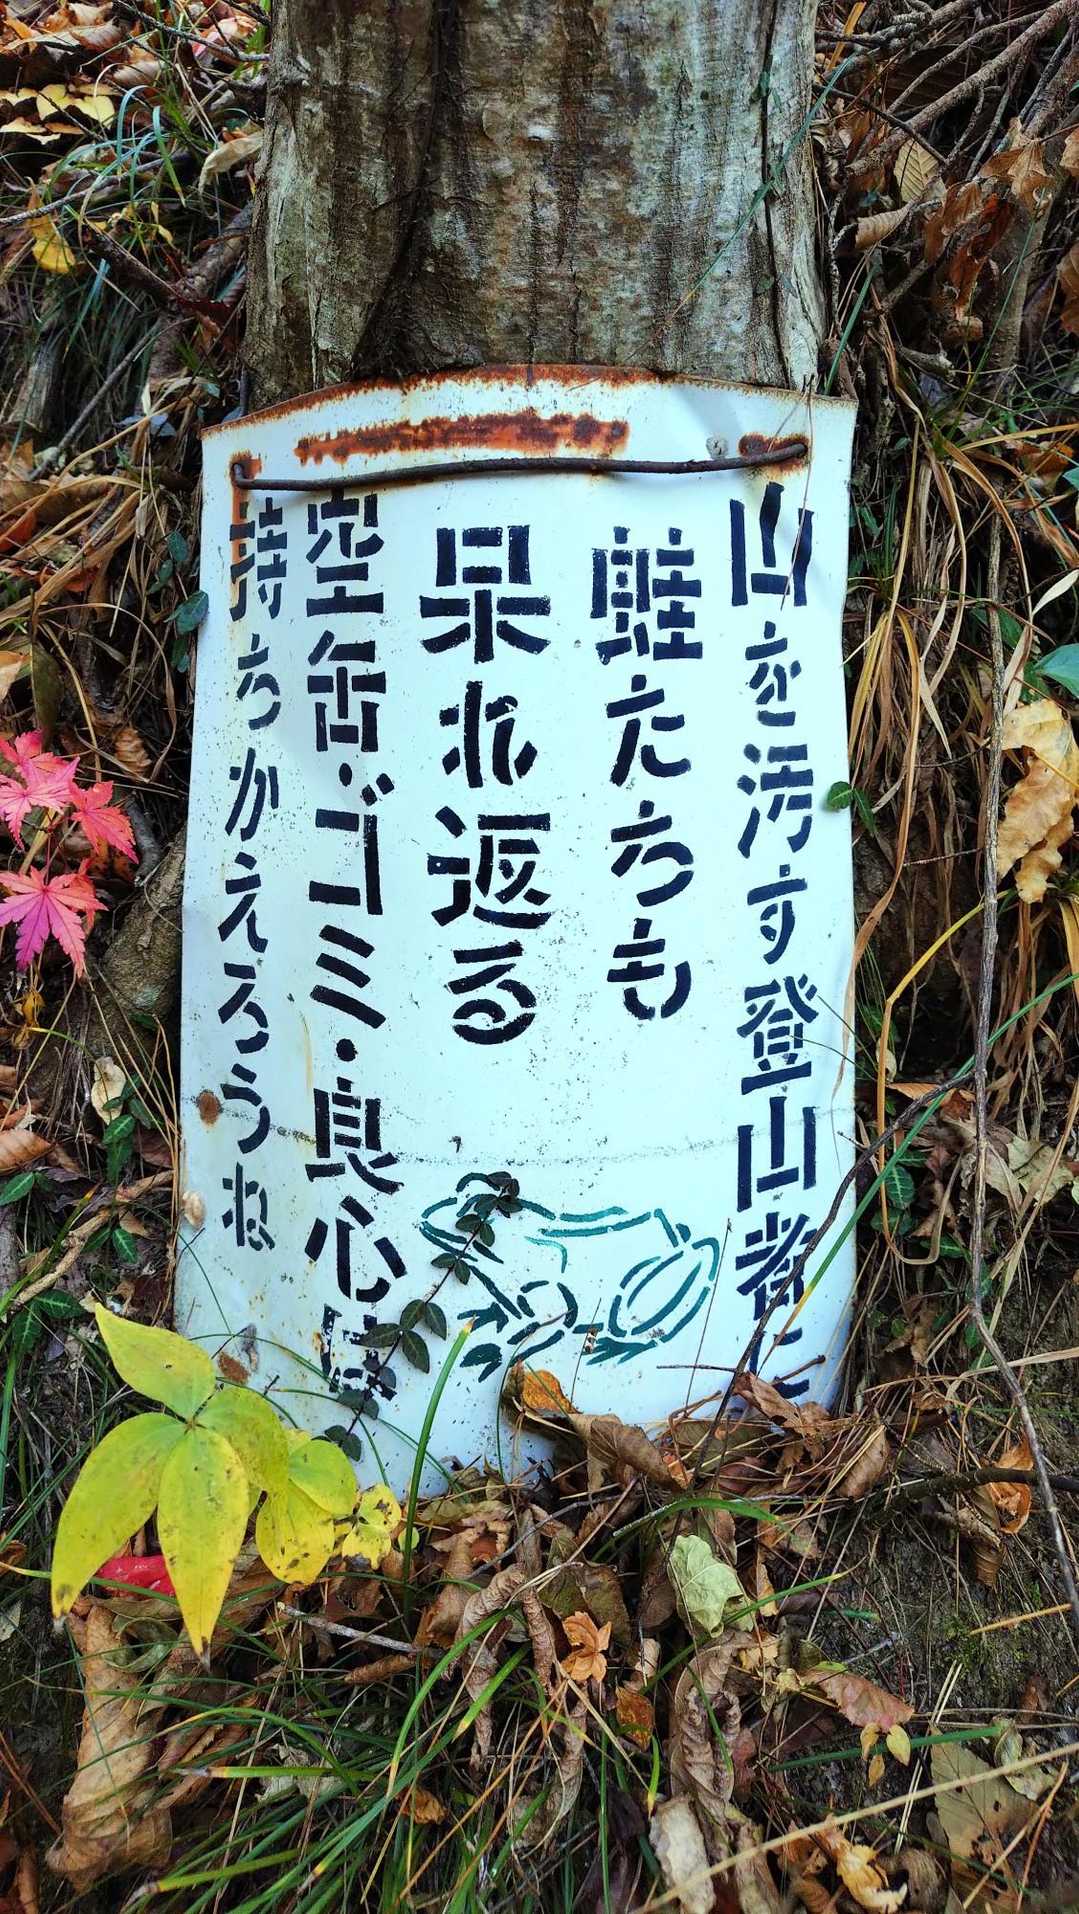 山を汚す登山者に
蛙たちも
呆れ返る
空缶・ゴミ・良心は
持ちかえろうね